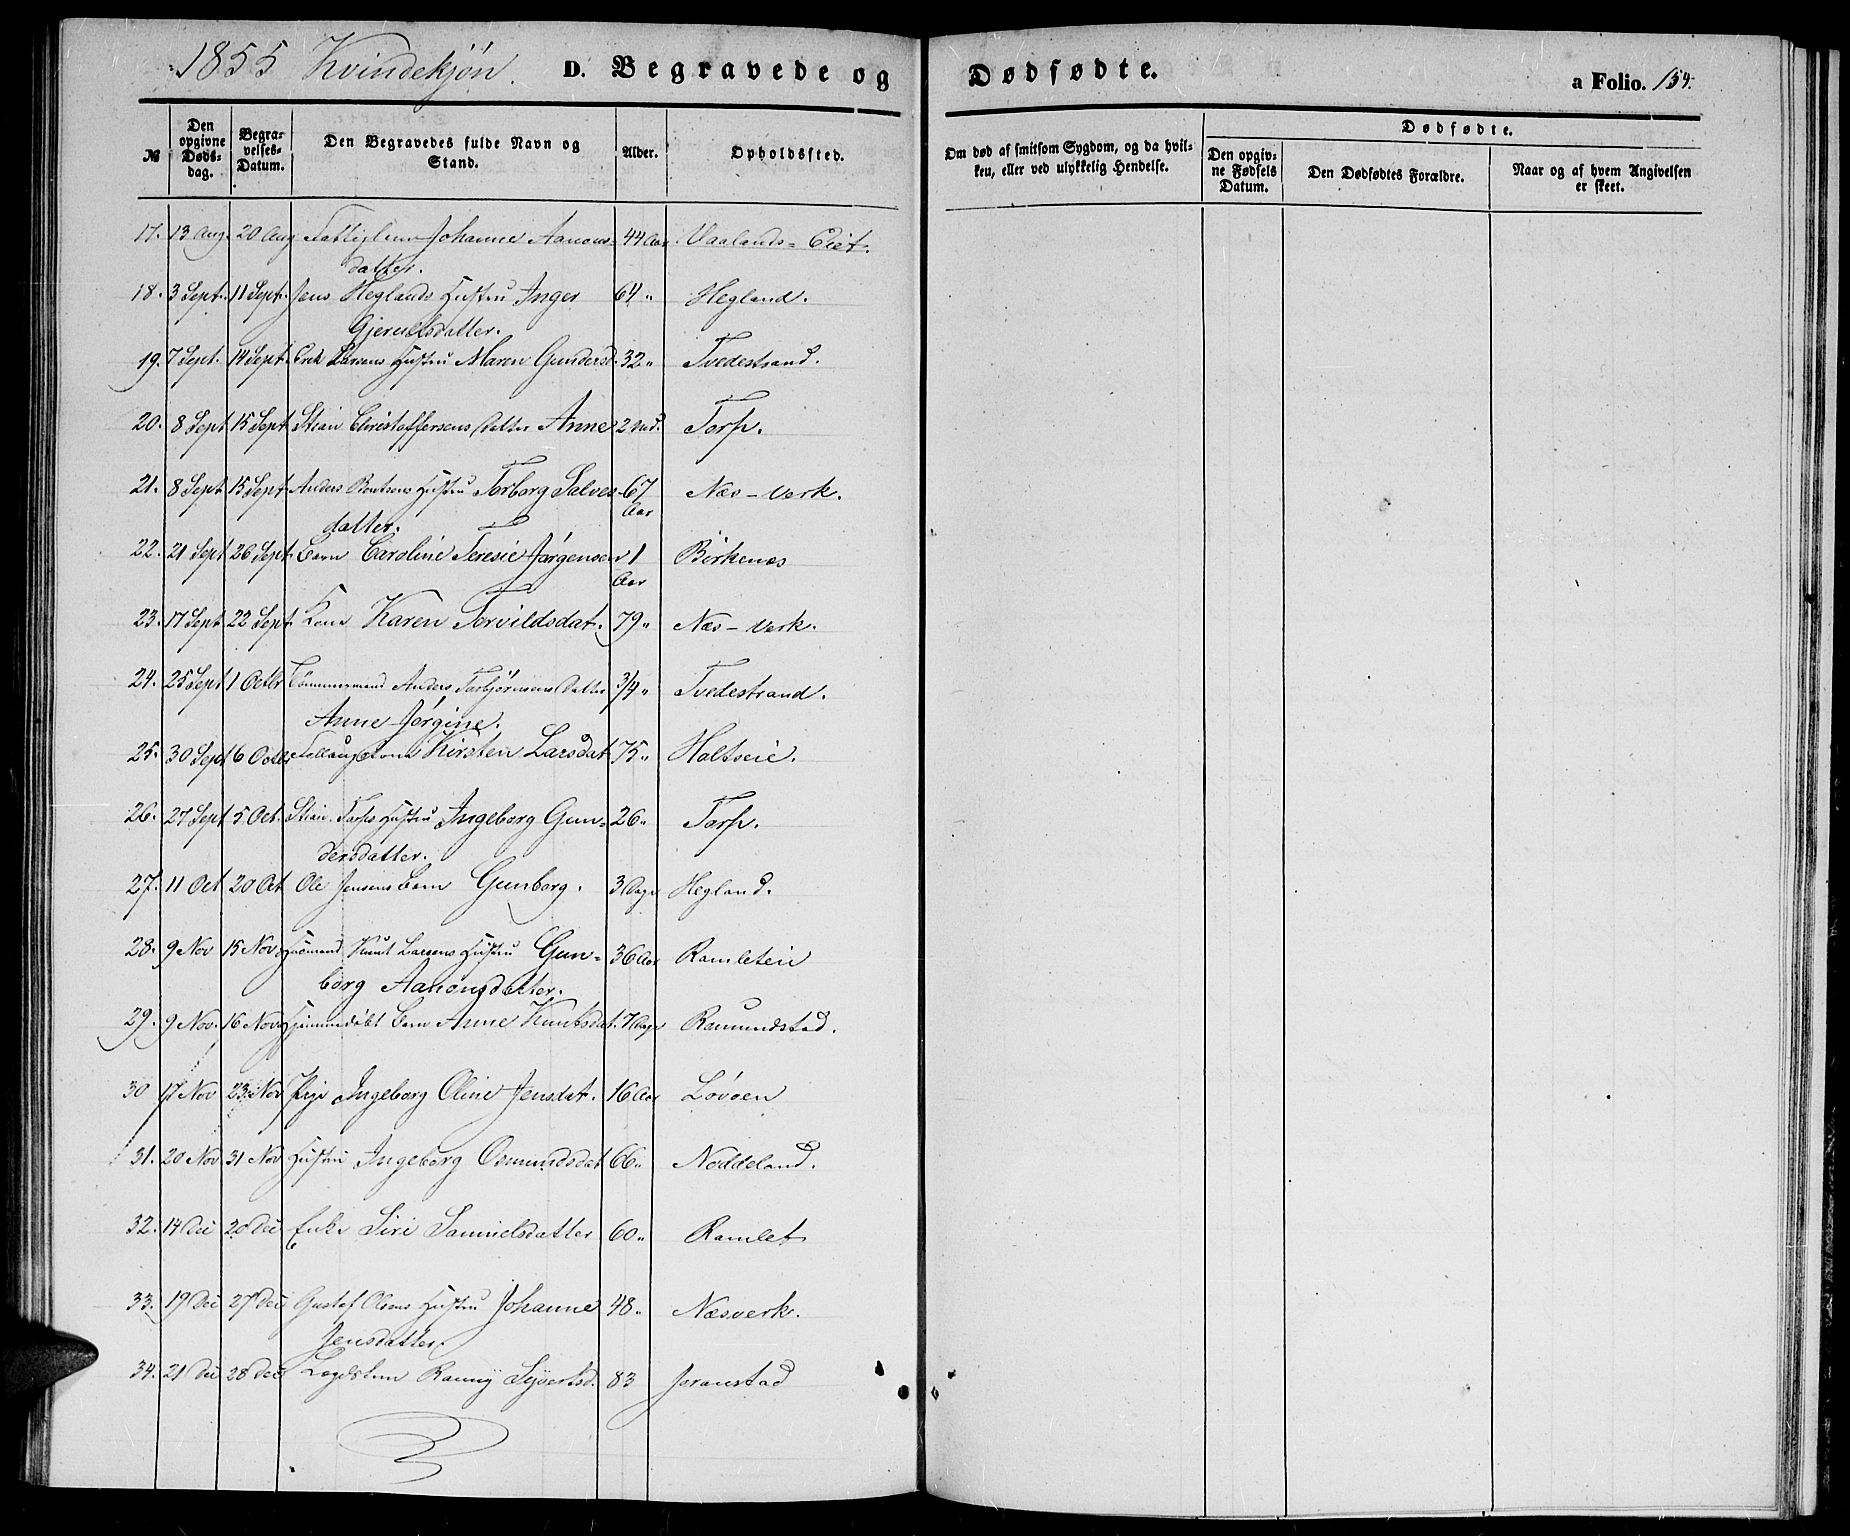 1855 Kvindekjøn. D. Begravede og Dødfødte. a Folio. 154.
№ Den opgivne Døds-dag. Begra-velses-Datum. Den Begravedes fulde Navn og Stand. Alder. Opholdssted. Om død af smitsom Sygdom, og da hvil-ken, eller ved ulykkelig Hendelse. Dødfødte. Den opgiv-ne Fødsels Datum. Den Dødfødtes Forældre. Naar og af hvem Angivelsen er skeet.
17. 13 Aug. 20 Aug Fattiglem Johanne Aanons- 44 Aar Vaalands-Eiet.
datter.
18. 3 Sept. 11 Sept. Jens Heglands Hustru Inger 64 " Hegland.
Gjerulsdatter.
19. 7 Sept. 14 Sept. Erik Larsens Hustru Maren Gundersd. 32 " Tvedestrand.
20. 8 Sept 15 Sept Stian Christoffersens Datter Anne 2 Torp.
21. 8 Sept 15 Sept Anders Bentsens Hustru Torborg Salves- 67 Aar Næs-Verk.
datter.
22. 21 Sept 26 Sept. Barn Caroline Teresie Jørgensen 1 Aar Birkenæs
23. 17 Sept 22 Sept. Kone Karen Torvildsdat. 79 " Næs-Verk.
24. 25 Sept 1 Octbr Tømmermand Anders Torbjørnsens Datter 3/4 " Tvedestrand.
Anne Jørgine.
25. 30 Sept 6 Octbr Kirsten Larsdat 75 " Holtseie.
26. 27 Sept 5 Oct. Stian Torps Hustru Ingeborg Gun- 26 " Torp.
dersdatter.
27. 11 Oct 20 Oct Ole Jensens Barn Gunborg. 3 Dage Hegland.
28. 9 Nov 15 Nov. Husmand Knut Larsens Hustru Gun- 36 Aar Ramleteie
borg Aanonsdatter.
29. 9 Nov. 16 Nov. Hjemmedøbt Barn Anne Knutsdat. 7 Dage Ramundstad.
30 17 Nov 23 Nov Pige Ingeborg Oline Jensdat. 16 Aar Løvøen
31. 20 Nov 31 Nov Hustru Ingeborg Osmundsdat 66 " Noddeland.
32. 14 Dec 20 Dec Enke Siri Samuelsdatter 60 " Ramlet
33. 19 Dec 27 Dec Gustaf Olsens Hustru Johanne 48 " Næsverk.
Jensdatter.
34. 21 Dec 28 Dec Lægdslem Ranny Syvertsd. 83 Joranstad